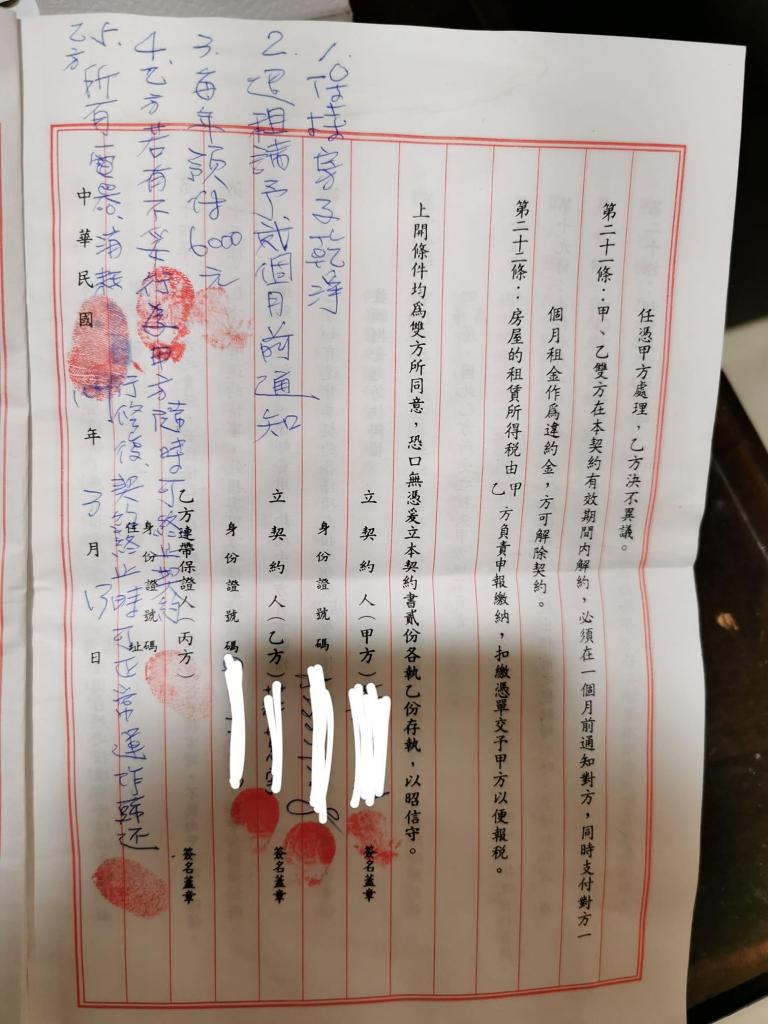 任憑甲方處理，乙方決不異議。
第二十一條：甲、乙雙方在本契約有效期間內解約，必須在一個月前通知對方，同時支付對方一
個月租金作爲違約金，方可解除契約。
第二十二條：房屋的租賃所得稅由甲乙方負責申報繳納，扣繳憑單交予甲方以便報稅。
上開條件均爲雙方所同意，恐口無憑爰立本契約書貳份各執乙份存執，以昭信守。
立契約人（甲方） 簽名蓋章
身份證號碼
立契約人（乙方） 簽名蓋章
身份證號碼
乙方連帶保證人（丙方） 簽名蓋章
身份證號碼
住址
中華民國 年 3 月 13 日
1. 保持房子乾淨
2. 退租請予貳個月前通知
3. 每年預付6000元
4. 乙方若有不良行為甲方隨時可終止契約
5. 所有電器
乙方 行修復、契約終止時可正常運作歸還